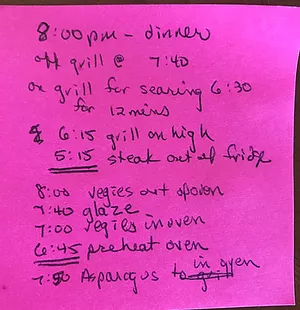 8:00 pm - dinner
off grill @ 7:40
on grill for searing 6:30
for 12 mins
6:15 grill on high
5:15 steak out of fridge
8:00 vegies out
7:40 glaze
7:00 vegies in oven
6:45 preheat oven
7:50 Asparagus to grill in oven